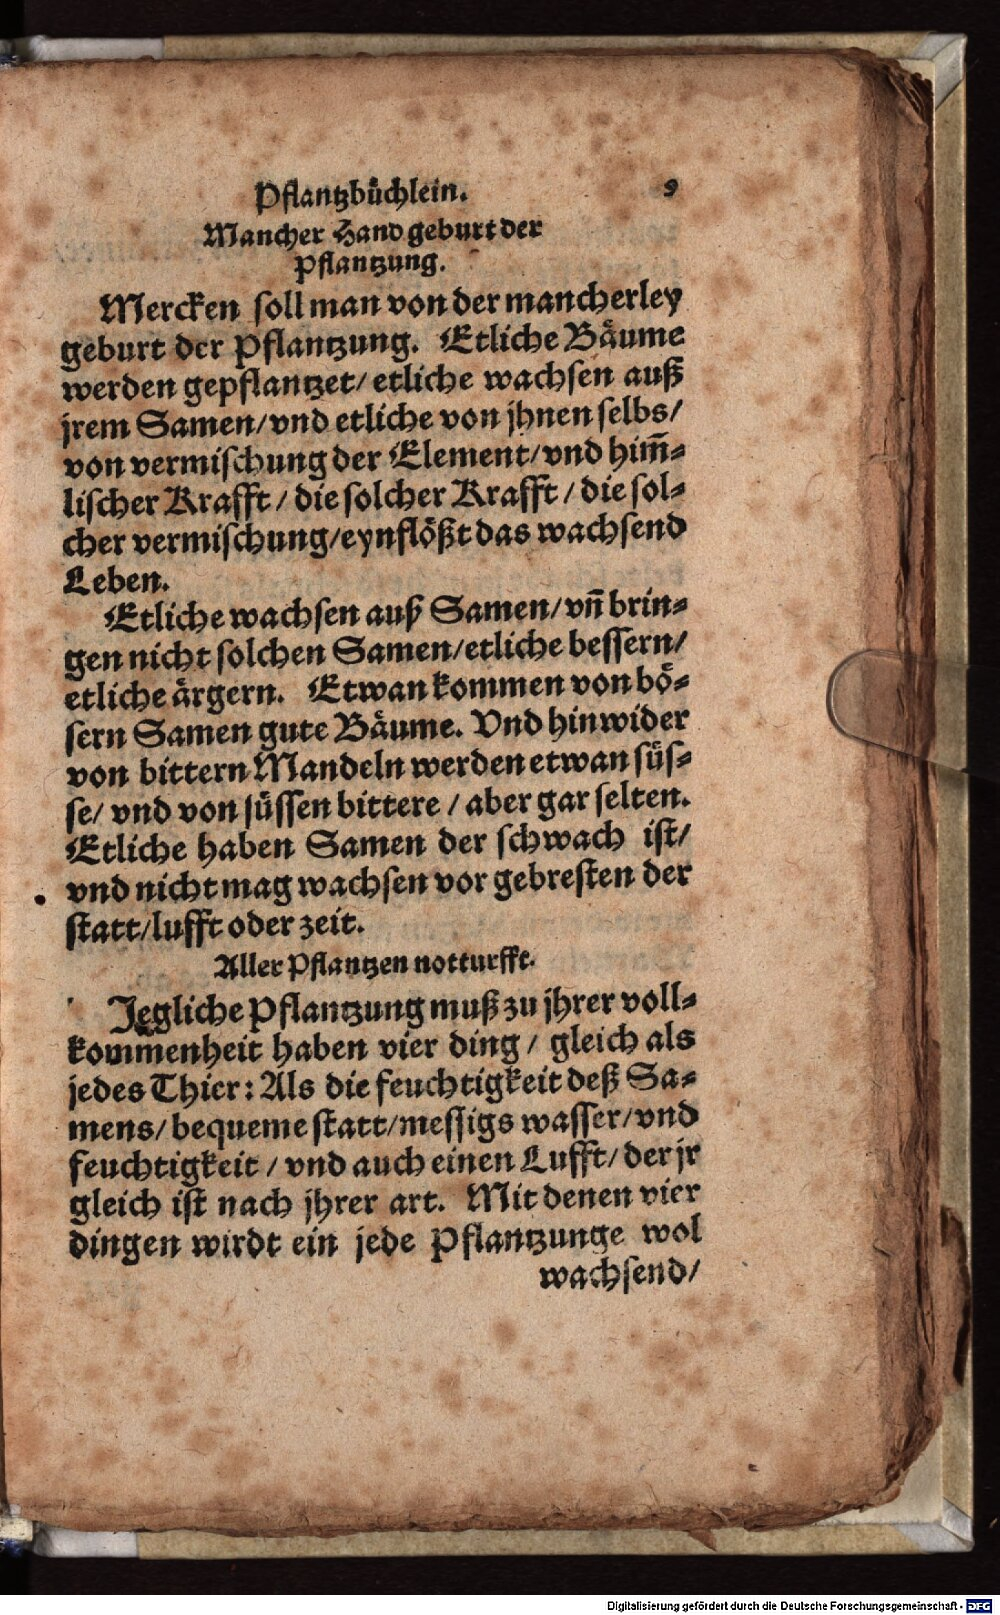 Pflantzbüchlein. 9
Mancher Hand geburt der
Pflantzung.
Mercken soll man von der mancherley
geburt der Pflantzung. Etliche Bäume
werden gepflantzet/ etliche wachsen auß
jrem Samen/ vnd etliche von jhnen selbs/
von vermischung der Element/ vnd him̄-
lischer Krafft / die solcher Krafft / die sol-
cher vermischung/ eynflößt das wachsend
Leben.
Etliche wachsen auß Samen/ vn̄ brin-
gen nicht solchen Samen/ etliche bessern/
etliche ärgern. Etwan kommen von bö-
sern Samen gute Bäume. Vnd hinwider
von bittern Mandeln werden etwan süs-
se/ vnd von süssen bittere / aber gar selten.
Etliche haben Samen der schwach ist/
vnd nicht mag wachsen vor gebresten der
statt/ lufft oder zeit.
Aller Pflantzen notturfft.
Jegliche Pflantzung muß zu jhrer voll-
kommenheit haben vier ding / gleich als
jedes Thier: Als die feuchtigkeit deß Sa-
mens/ bequeme statt/ messigs wasser/ vnd
feuchtigkeit / vnd auch einen Lufft/ der jr
gleich ist nach jhrer art. Mit denen vier
dingen wirdt ein jede Pflantzunge wol
wachsend/
Digitalisierung gefördert durch die Deutsche Forschungsgemeinschaft - DFG